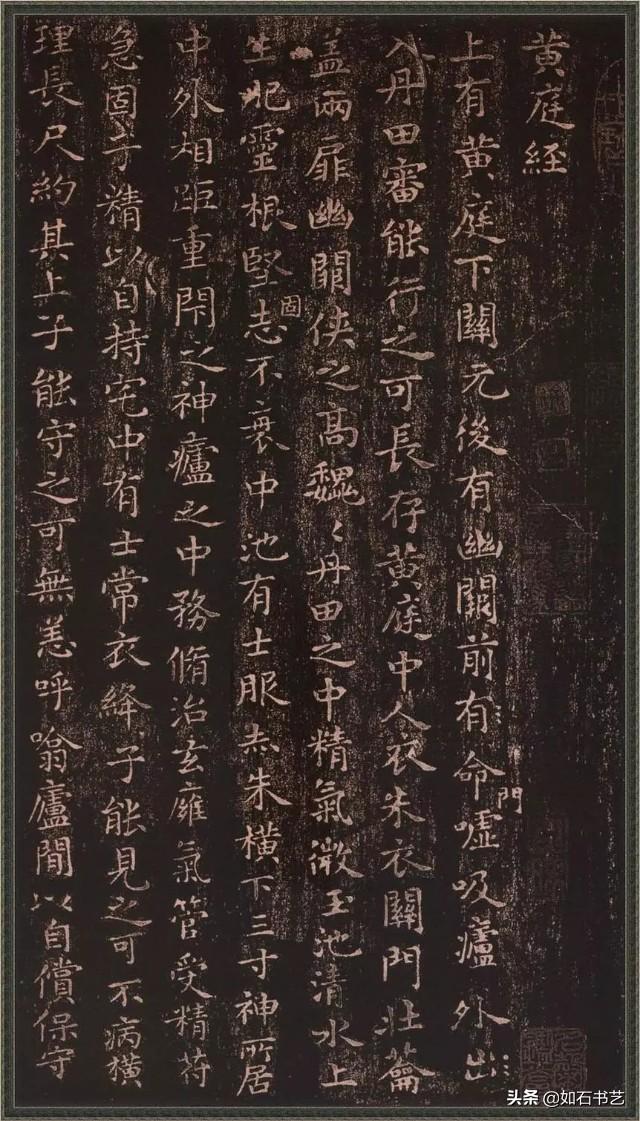 黄庭經
上有黄庭下關元後有幽闕前有命門噓吸廬外出
入丹田審能行之可長存黄庭中人衣朱衣關門壯籥
盖兩扉幽闕俠之高巍〻丹田之中精氣微玉池清水上
生肥靈根堅固志不衰中池有士服赤朱橫下三寸神所居
中外相距重閇之神廬之中務脩治玄㢕氣管受精苻
急固子精以自持宅中有士常衣絳子能見之可不病橫
理長尺約其上子能守之可無恙呼噏廬間以自償保守
头条 @如石书艺